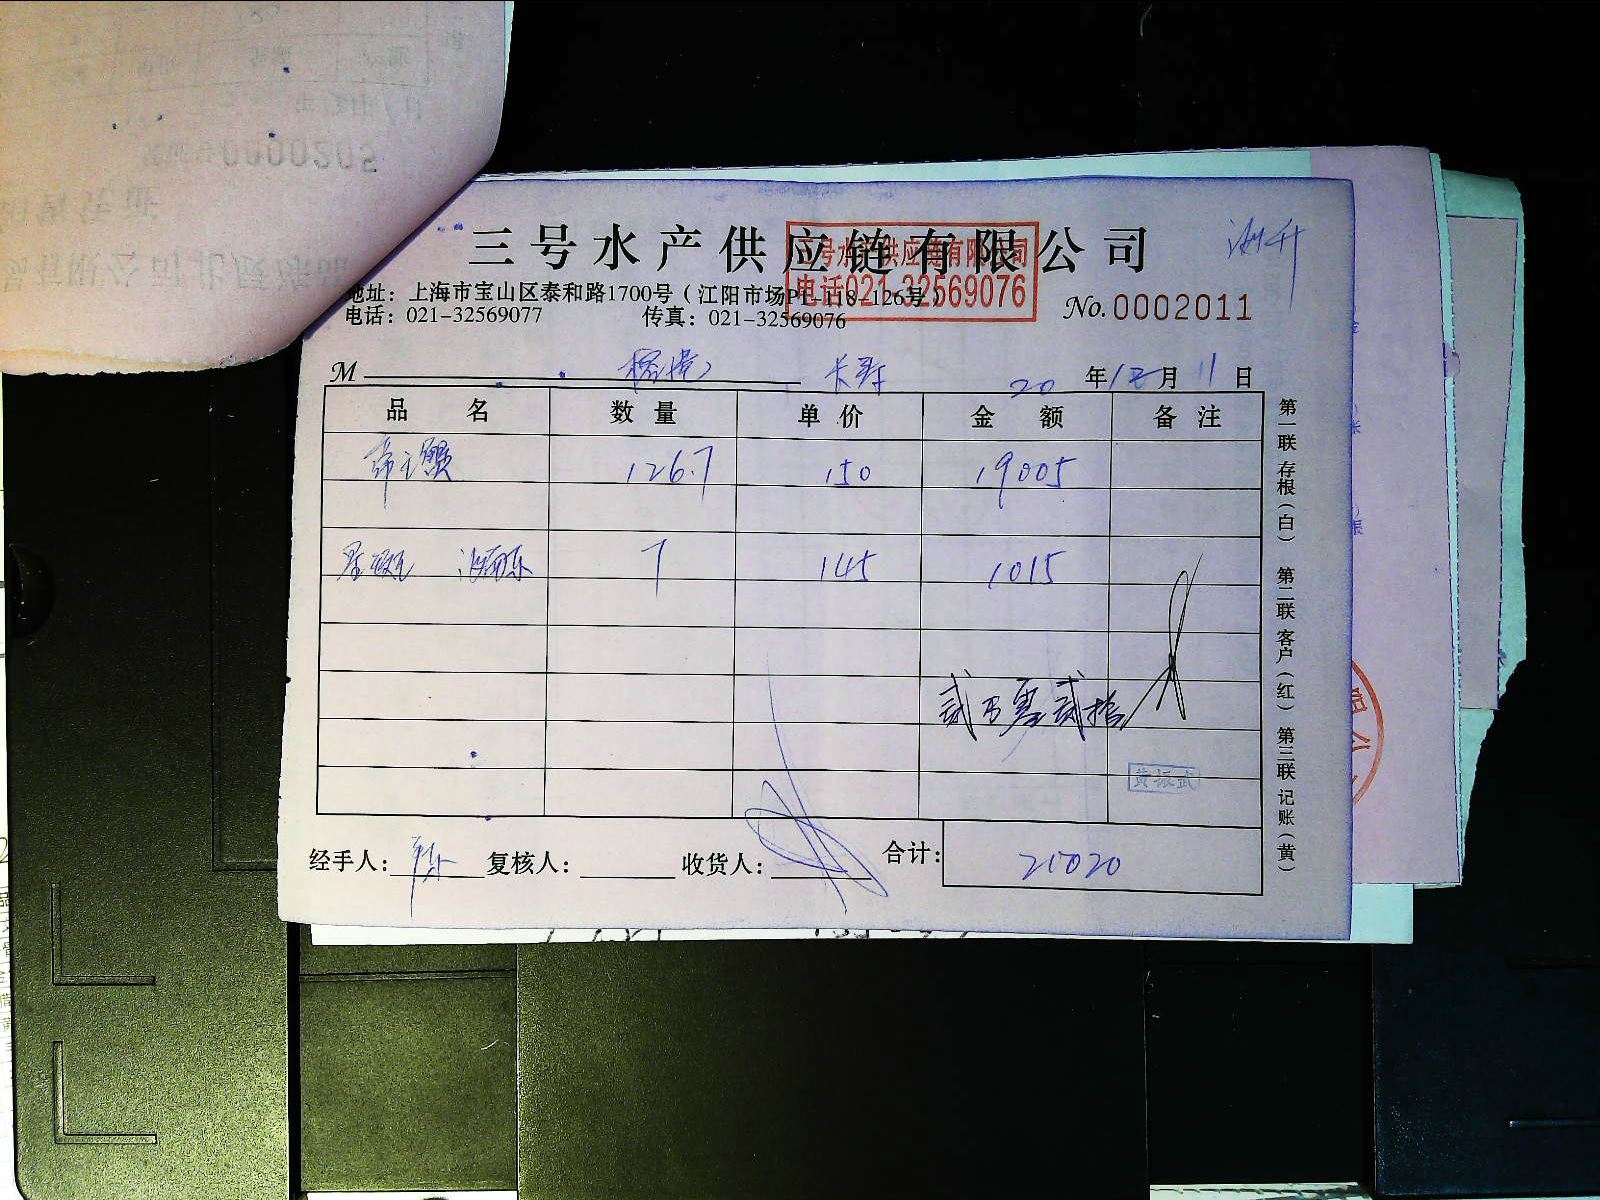 0000205
三号水产供应链有限公司
地址：上海市宝山区泰和路1700号（江阳市场P1-118-126号）
电话：021-32569077 传真：021-32569076
号水产供应链有限公司
电话021-32569076
No. 0002011
M 长寿 20 年 12 月 11 日
品名 数量 单价 金额 备注
帝王蟹 126.7 150 19005
7 145 1015
贰万零贰拾
黄振武
经手人： 复核人： 收货人： 合计： 20020
第一联 存根（白） 第二联 客户（红） 第三联 记账（黄）